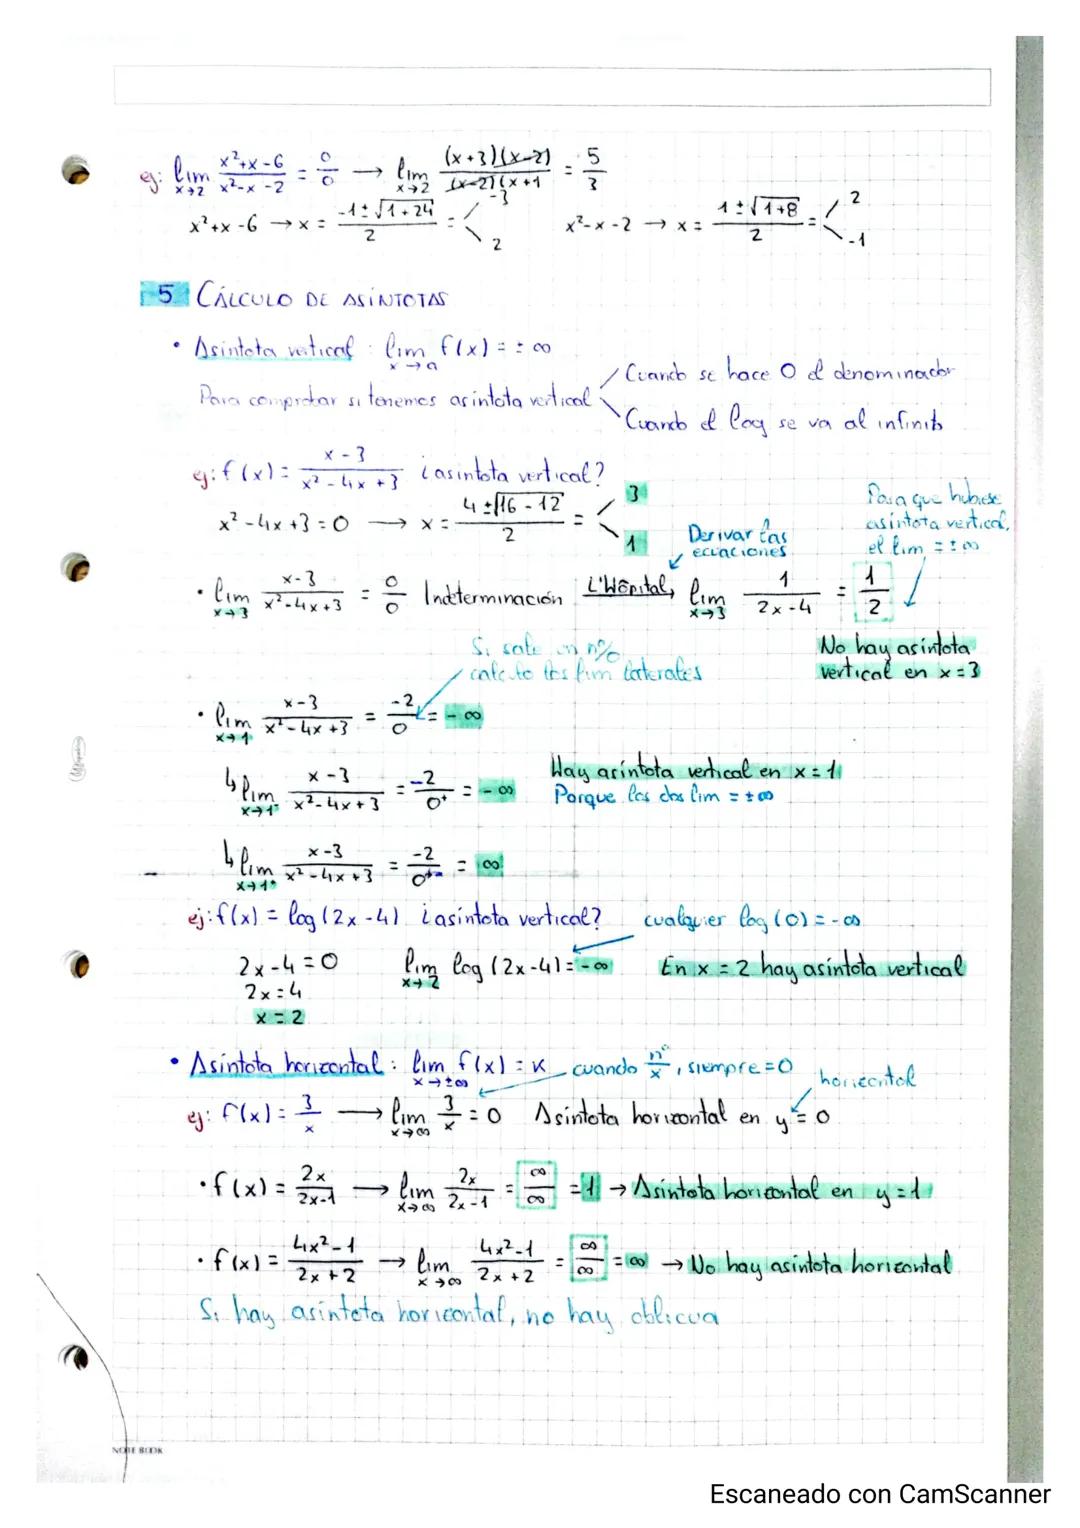 ej: lim x→2 (x²+x-6)/(x²-x-2) = 0/0 → lim x→2 (x+3)(x-2)/(x-2)(x+1 = 5/3
x²+x-6 → x = (-1±√1+24)/2 = -3 2 x²-x-2 → x = (1±√1+8)/2 = 2 -1
5 CÁLCULO DE ASÍNTOTAS
• Asíntota vertical: lim x→a f(x) = ±∞
Para comprobar si tenemos asíntota vertical
Cuando se hace 0 el denominador
Cuando el log se va al infinito
ej: f(x) = (x-3)/(x²-4x+3) ¿asíntota vertical?
x²-4x+3=0 → x = (4±√16-12)/2 = 3 1
Derivar las ecuaciones
Para que hubiese asíntota vertical, el lim = ±∞
• lim x→3 (x-3)/(x²-4x+3) = 0/0 Indeterminación L'Hôpital, lim x→3 1/(2x-4) = 1/2
No hay asíntota vertical en x=3
Si sale un nº/0 calculo los lim laterales
• lim x→1 (x-3)/(x²-4x+3) = -2/0 = -∞
↳ lim x→1⁻ (x-3)/(x²-4x+3) = -2/0⁺ = -∞
Hay asíntota vertical en x=1
Porque los dos lim = ±∞
↳ lim x→1⁺ (x-3)/(x²-4x+3) = -2/0⁻ = ∞
ej: f(x) = log(2x-4) ¿asíntota vertical? cualquier log(0) = -∞
2x-4=0 lim x→2 log(2x-4) = -∞ En x=2 hay asíntota vertical
2x=4
x=2
• Asíntota horizontal: lim x→±∞ f(x) = K cuando nº/x, siempre=0 horizontal
ej: f(x) = 3/x → lim x→∞ 3/x = 0 Asíntota horizontal en y=0
• f(x) = 2x/(2x-1) → lim x→∞ 2x/(2x-1) = ∞/∞ = 1 → Asíntota horizontal en y=1
• f(x) = (4x²-1)/(2x+2) → lim x→∞ (4x²-1)/(2x+2) = ∞/∞ = ∞ → No hay asíntota horizontal
Si hay asíntota horizontal, no hay oblicua
NOTE BOOK
Escaneado con CamScanner